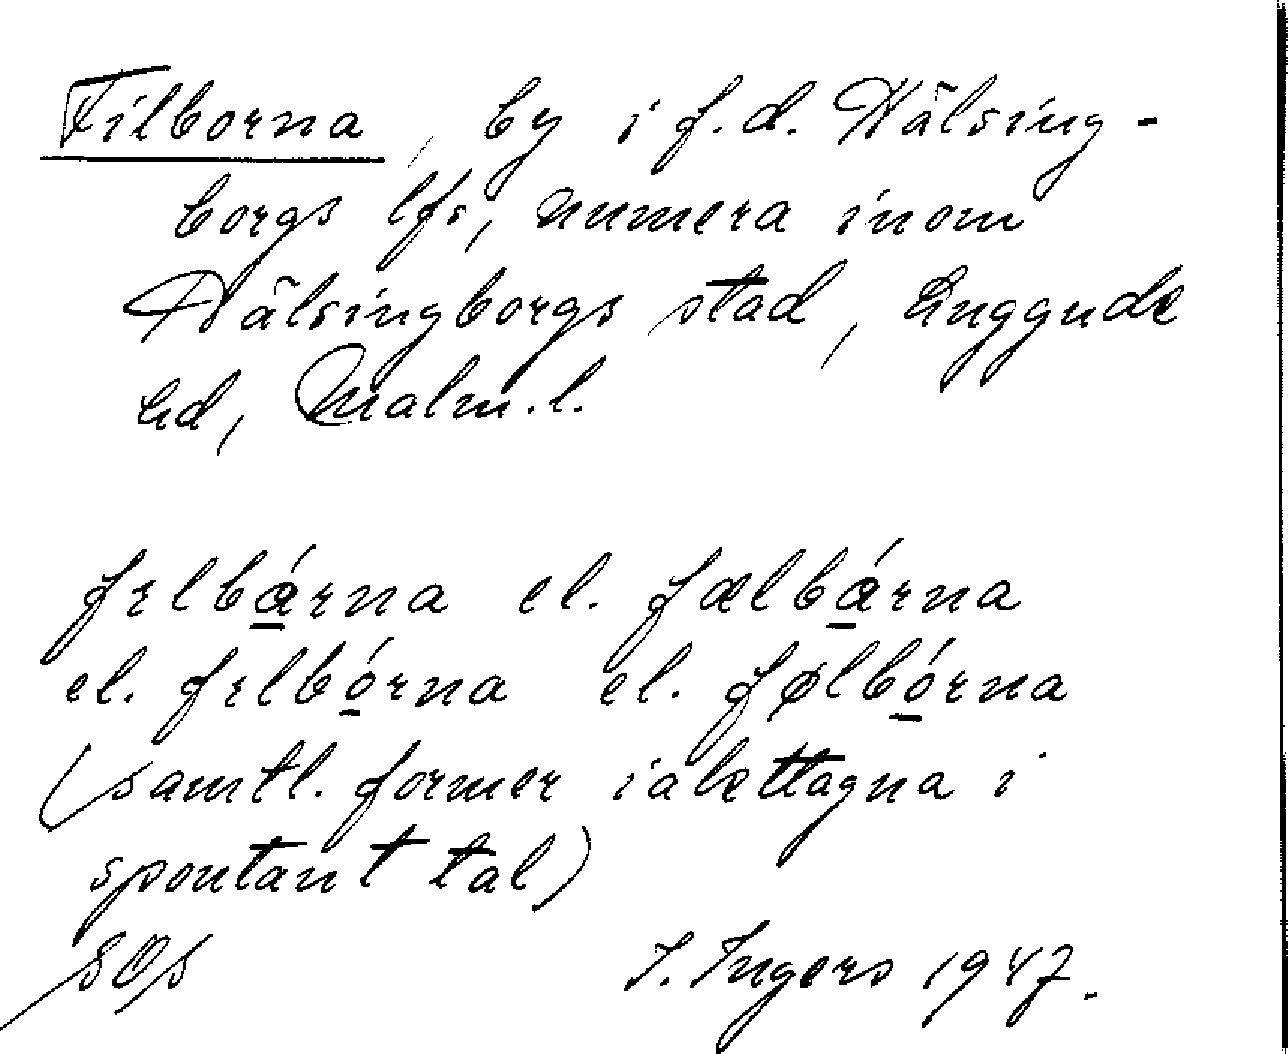 Filborna, by i f.d. Hälsing-
borgs lfs, numera inom
Hälsingborgs stad, Luggude
hd, Malm.l.
fɛlbɑ̱́rna el. fælbɑ̱́rna
el. fɛlbó̱rna el. følbó̱rna
(samtl. former iakttagna i
spontant tal)
I. Ingers 1947.